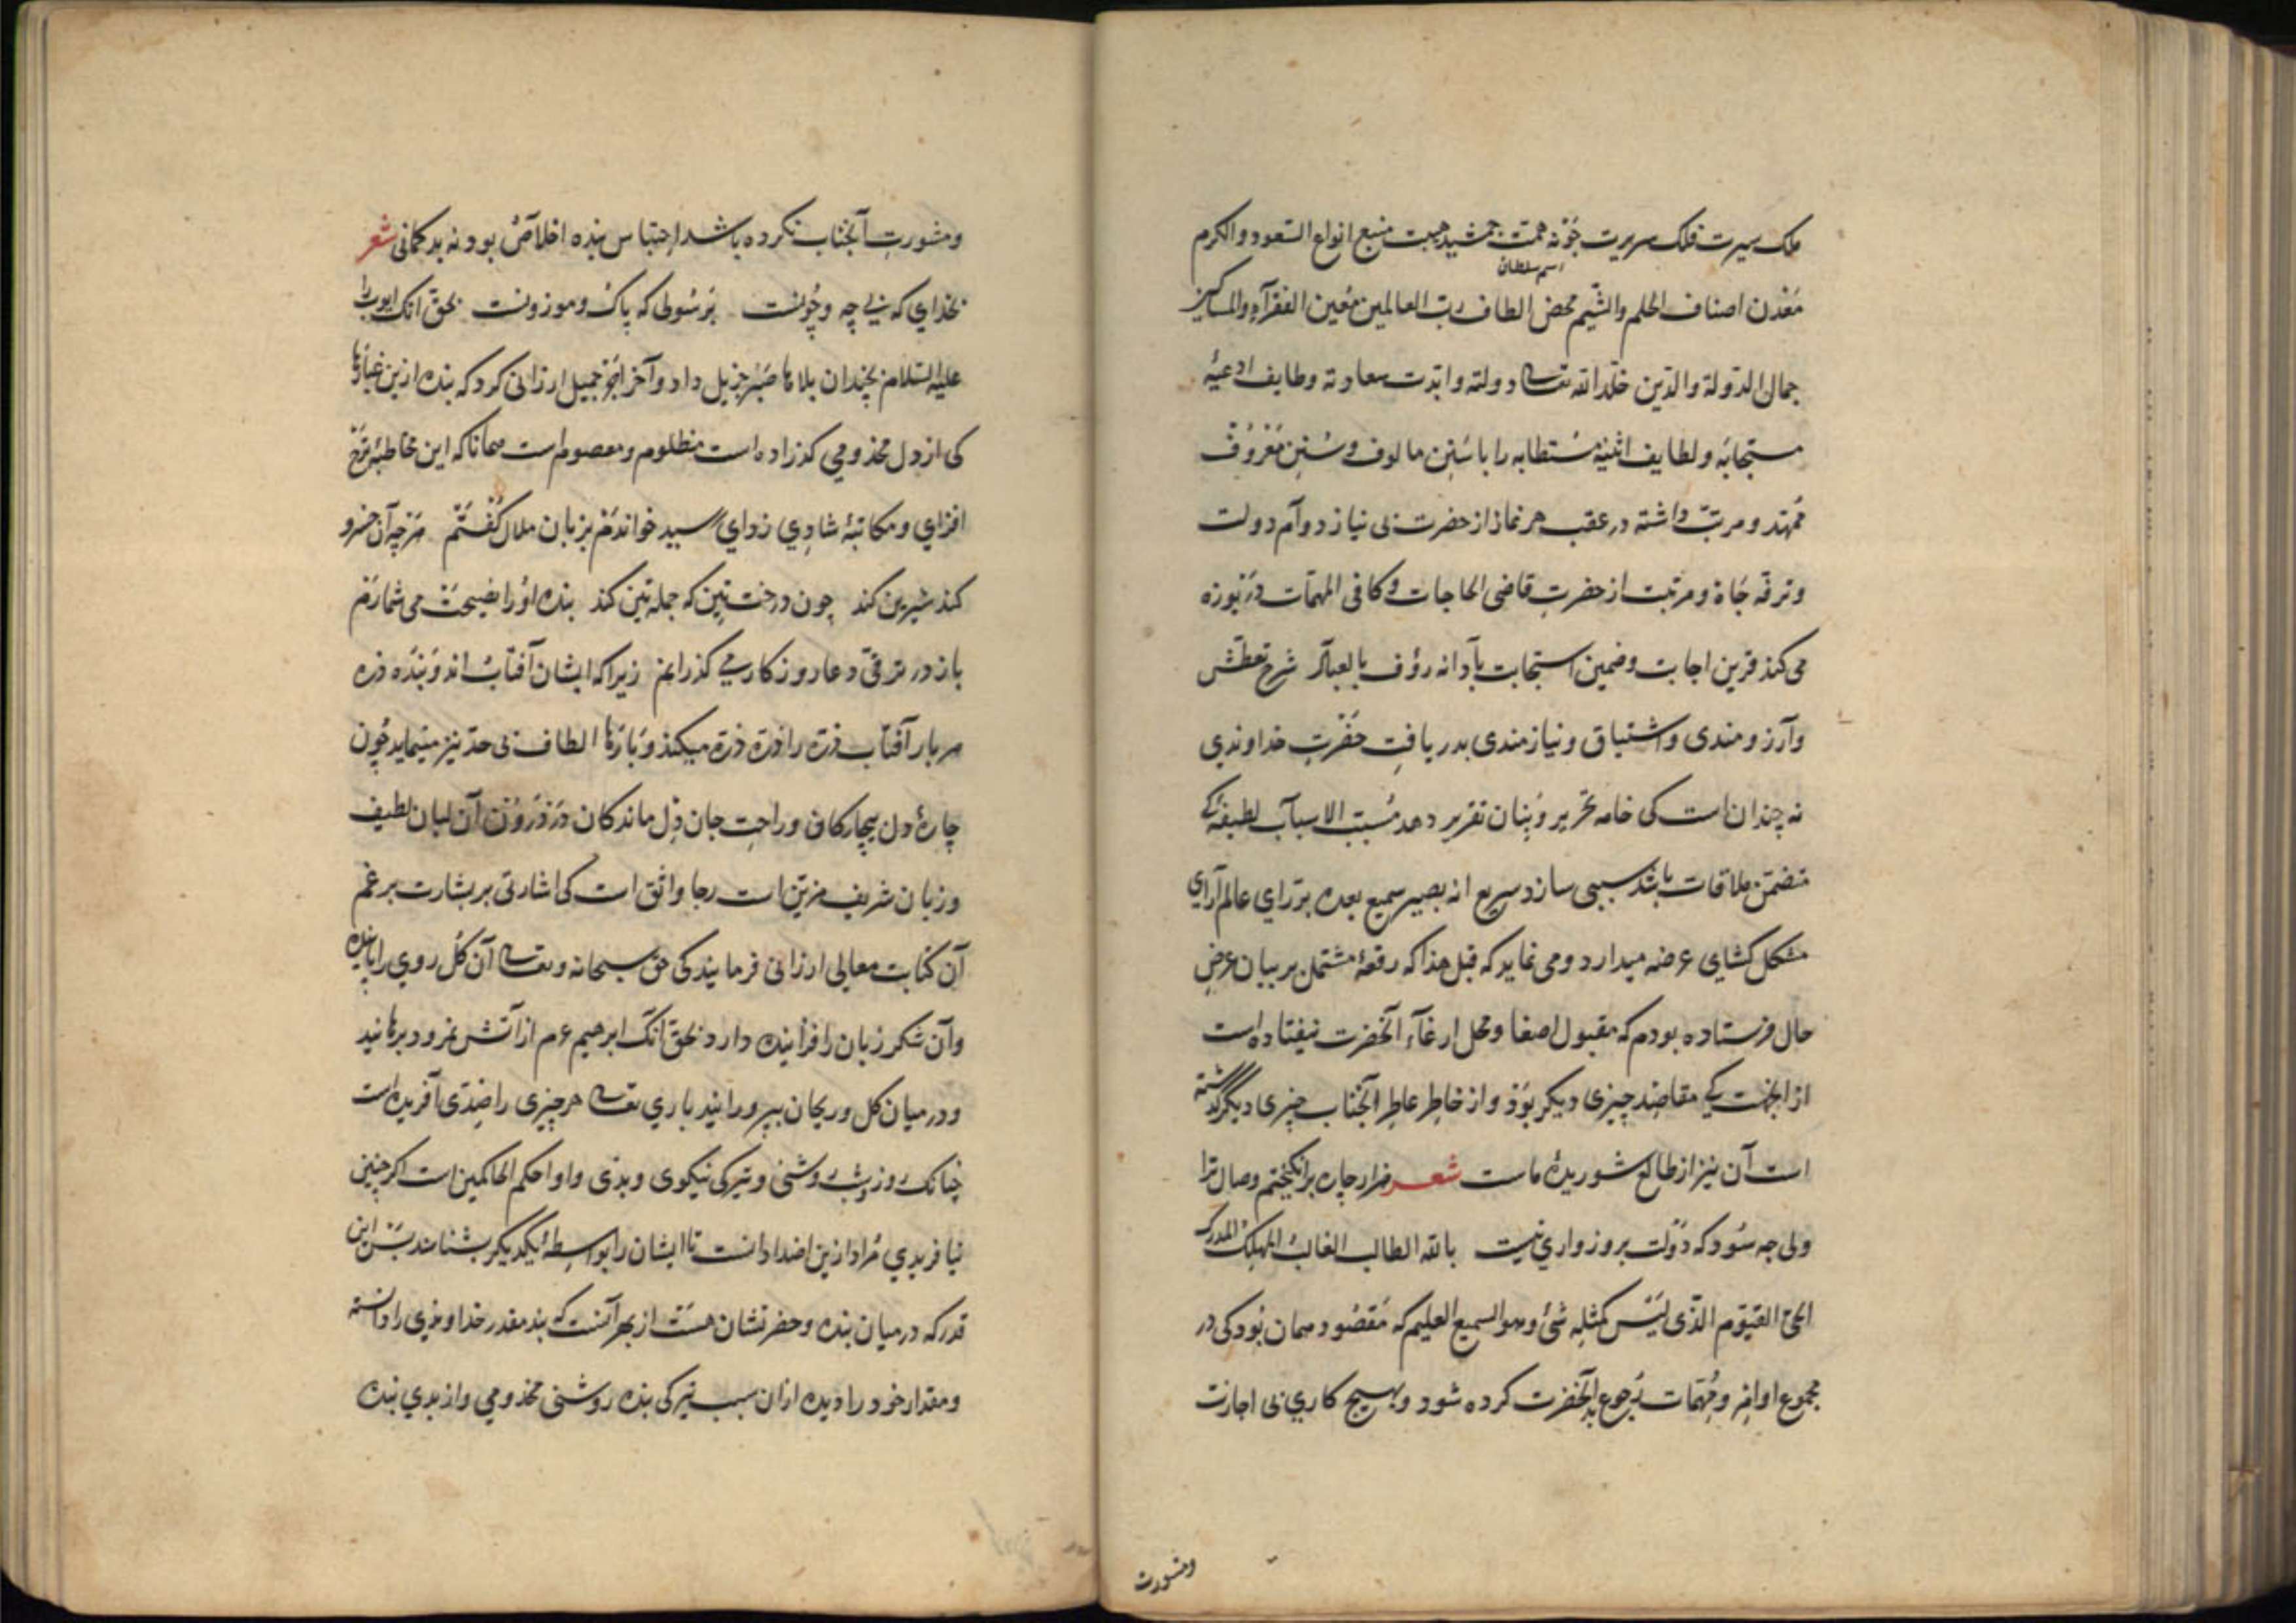 ملک سیرت فلک سریرت همت جمشید هیبت منبع انواع السعود والکرم
اسم سلطان
معدن اصناف الحلم والشیم محض الطاف رب العالمین معین الفقرآء والمساکین
جمال الدولة والدین خلد الله تعالی دولته وابدت سعادته وظایف ادعیهٔ
مستجابه ولطایف اثنیهٔ مستطابه را با سنن مالوف و سنن معروف
ممهد و مرتب داشته در عقب هر نماز از حضرت بی نیاز دوام دولت
و ترفه جاه و مرتبت از حضرت قاضی الحاجات و کافی المهمات دریوزه
می کند قرین اجابت و ضمین استجابت بادانه رؤف بالعباد شرح تعطش
وآرزومندی واشتیاق ونیازمندی بدریافت حضرت خداوندی
نه چندان است کی خامه تحریر و بنان تقریر دهد مسبب الاسباب لطیفهٔ کی
متضمن ملاقات باشد سببی سازد سریع انه بصیر سمیع بعده بر رای عالم آرای
مشکل کشای عرضه میدارد و می نماید که قبل هذا که رقعهٔ مشتمل بر بیان عرض
حال فرستاده بودم که مقبول اصغا و محل ارغآء آنحضرت نیفتاده است
از آنجهت کی مقاصد چیزی دیکر بوذ و از خاطر عاطر آنجناب چیزی دیگر گذشته
است آن نیز از طالع شوریدهٔ ماست شعر هزار چاره برانکیختم وصال ترا
ولی چه سود که دولت بروز واری نیست بالله الطالب الغالب المهلک المدرک
الحی القیوم الذی لیس کمثله شئ وهو السمیع العلیم که مقصود همان بود کی در
مجموع اوامر و مهمات رجوع بآنحضرت کرده شود و بهیچ کاری بی اجازت
ومشورت
ومشورت آنجناب نکرده باشد احتباس بنده اخلاص بود نه بدکمانی شعر
بخدای که بی چه وچونست برسولی که پاک وموزونست بحق انک ایوب را
علیه السلام بچندان بلاها صبر جزیل داد وآخر اجر جمیل ارزانی کرد که بنده ازین غبارها
کی از دل مخدومی کذراده است مظلوم ومعصوم است همانا که این مخاطبهٔ
افزای ومکاتبهٔ شادی زدای رسید خواندم بزبان ملال کفتم هرچه آن خسرو
کند شیرین کند چون درخت تین که جمله تین کند بنده او را نصیحت می شمارم
باز در ترقی دعا روزکار می کذرانم زیراکه ایشان آفتاب اند و بنده ذره
هر بار آفتاب ذره را ذره ذره میکند و بازها الطاف بی حد نیز مینماید چون
چارهٔ دل بیچارکان وراحت جان دل ماندکان در درون آن لبان لطیف
وزبان شریف مزین است رجا واثق است کی اشارتی بر بشارت برغم
آن کتابت معالی ارزانی فرمایند کی حق سبحانه وتعالی آن کل روی را پاینده
وآن شکر زبان را فزاینده دارد بحق آنک ابرهیم عم از آتش نمرود برهانید
ودر میان کل وریحان بپرورانید باری تعالی هر چیزی را ضدی آفریده است
چنانک روز وشب روشنی وتیرکی نیکوی وبدی واو احکم الحاکمین است اکر چنین
نیافریدی مراد ازین اضداد آنست تا ایشان را بواسطهٔ یکدیکر بشناسند پس این
قدر که درمیان بنده وحضرتشان هست از بهر آنست که بنده قدر خداوندی را دانسته
ومقدار خود را دیده ازان سبب تیرکی بنده روشنی مخدومی واز بدی بنده